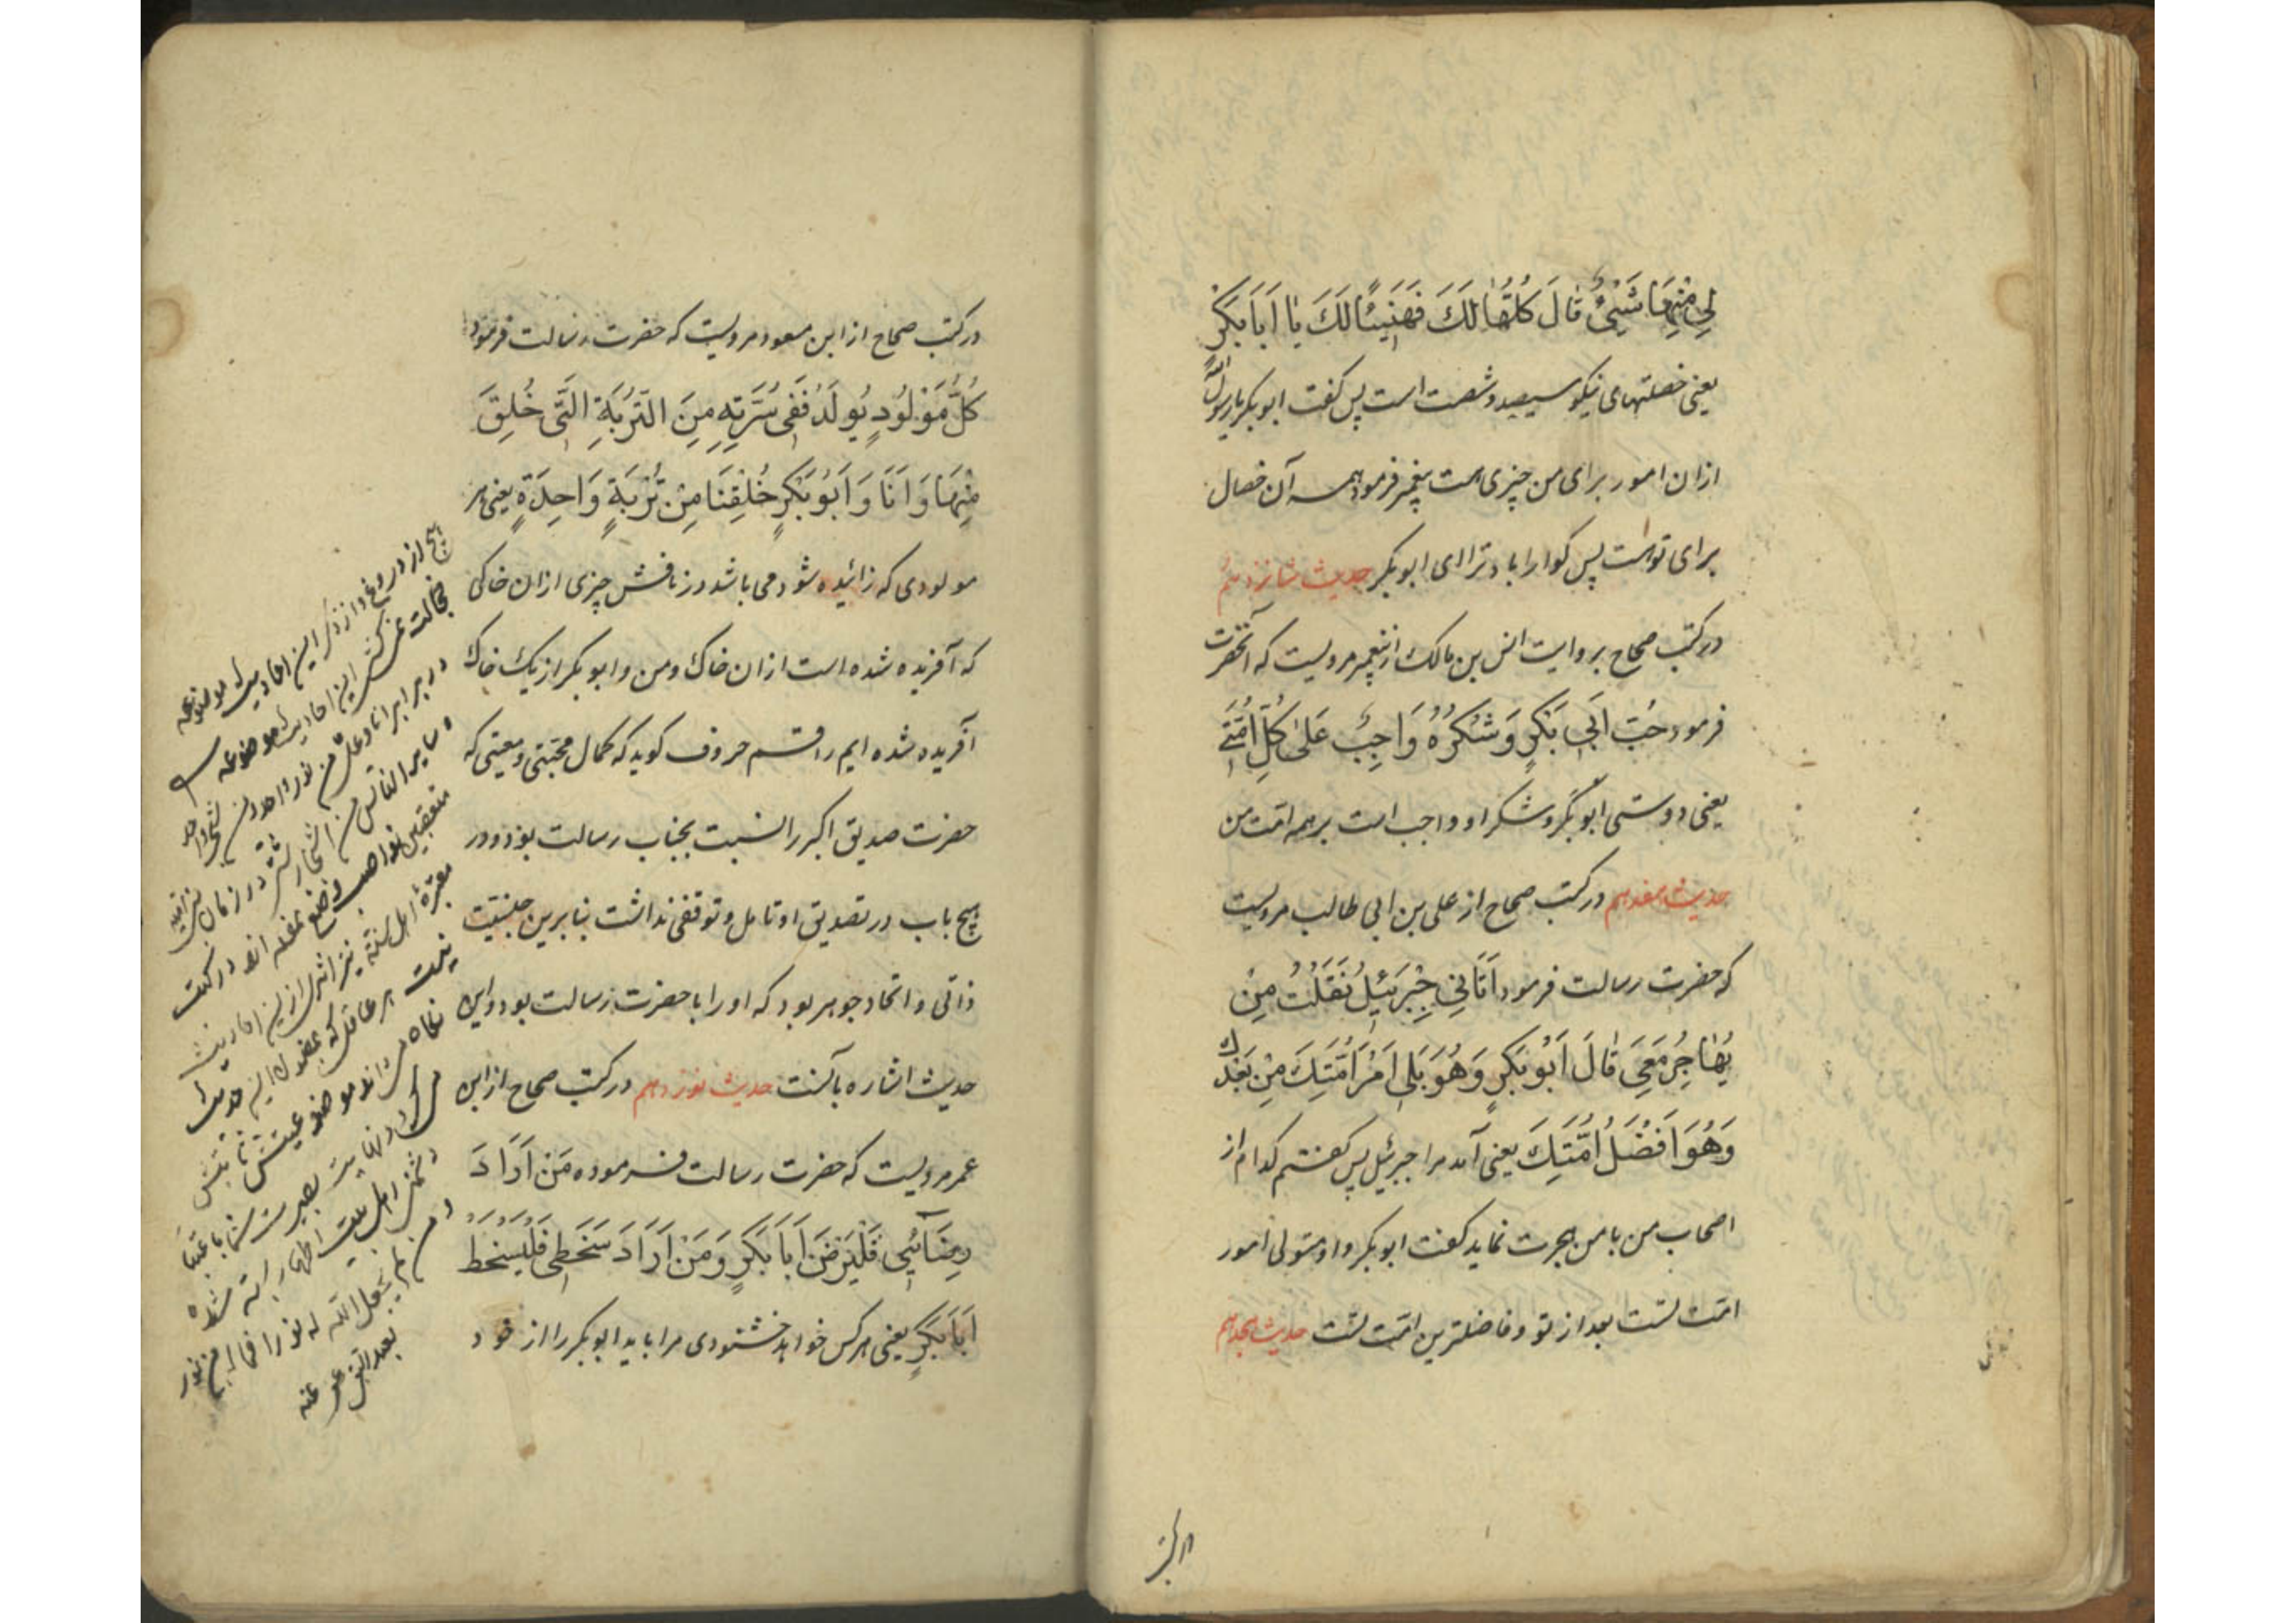 لِي مِنْهَا شَيْئٌ قَالَ كُلُّهَا لَكَ فَهَنِيئًا لَكَ يَا اَبَا بَكْرٍ
یعنی خصلتهای نیکو سیصد و شصت است پس کفت ابو بکر یا رسول الله
ازان امور برای من چیزی هست پیغمبر فرمود همه آن خصال
برای تو است پس کوارا باد ترا ای ابو بکر حدیث شانزدهم
در کتب صحاح بروایت انس بن مالک از پیغمبر مرویست که آنحضرت
فرمود حُبُّ اَبِي بَكْرٍ وَشُكْرُهُ وَاجِبٌ عَلَى كُلِّ اُمَّتِي
یعنی دوستی ابو بکر و شکر او واجب است بر همه امت من
حدیث هفدهم در کتب صحاح از علی بن ابی طالب مرویست
که حضرت رسالت فرمود اَتَانِي جِبْرَئِيلُ فَقُلْتُ مِنْ
يُهَاجِرُ مَعِي قَالَ اَبُو بَكْرٍ وَهُوَ يَلِي اَمْرَ اُمَّتِكَ مِنْ بَعْدِكَ
وَهُوَ اَفْضَلُ اُمَّتِكَ یعنی آمد مرا جبرئیل پس کفتم کدام از
اصحاب من با من هجرت نماید کفت ابو بکر و او متولی امور
امت تست بعد از تو و فاضلترین امت تست حدیث هجدهم
در کتب
در کتب صحاح از ابن مسعود مرویست که حضرت رسالت فرمود
كُلُّ مَوْلُودٍ يُولَدُ فَفِي سُرَّتِهِ مِنَ التُّرْبَةِ الَّتِي خُلِقَ
مِنْهَا وَاَنَا وَاَبُو بَكْرٍ خُلِقْنَا مِنْ تُرْبَةٍ وَاحِدَةٍ یعنی هر
مولودی که زائیده شود می باشد در نافش چیزی ازان خاکی
که آفریده شده است ازان خاک و من و ابو بکر از یک خاک
آفریده شده ایم راقم حروف کوید که کمال محبتی و معیتی که
حضرت صدیق اکبر را نسبت بجناب رسالت بود و در
هیچ باب در تصدیق او تامل و توقفی نداشت بنابرین جنسیت
ذاتی و اتحاد جوهر بود که او را با حضرت رسالت بود و این
حدیث اشاره بآنست حدیث نوزدهم در کتب صحاح از ابن
عمر مرویست که حضرت رسالت فرموده مَنْ اَرَادَ
رِضَائِي فَلْيَرْضَ اَبَا بَكْرٍ وَمَنْ اَرَادَ سَخَطِي فَلْيُسْخِطْ
اَبَا بَكْرٍ یعنی هر کس خواهد خشنودی مرا باید ابو بکر را از خود
هیچ از دروغ و از ذکر این احادیث موضوعه
خجالت نمی کشی این احادیث موضوعه
در برابر انا و علی من نور واحد و من شجرة واحد
و سایر الناس من اشجار شتی در زمان
متعصبین نواصب وضع نموده اند در کتب
معتبرهٔ اهل سنة نیز اثری ازین احادیث
نیست هر عاقل که مضمون این حدیث
نکاه
در نهایت بصیرت
دشمنی اهل بیت اطهار
و من لم یجعل الله له نورا فما له من نور